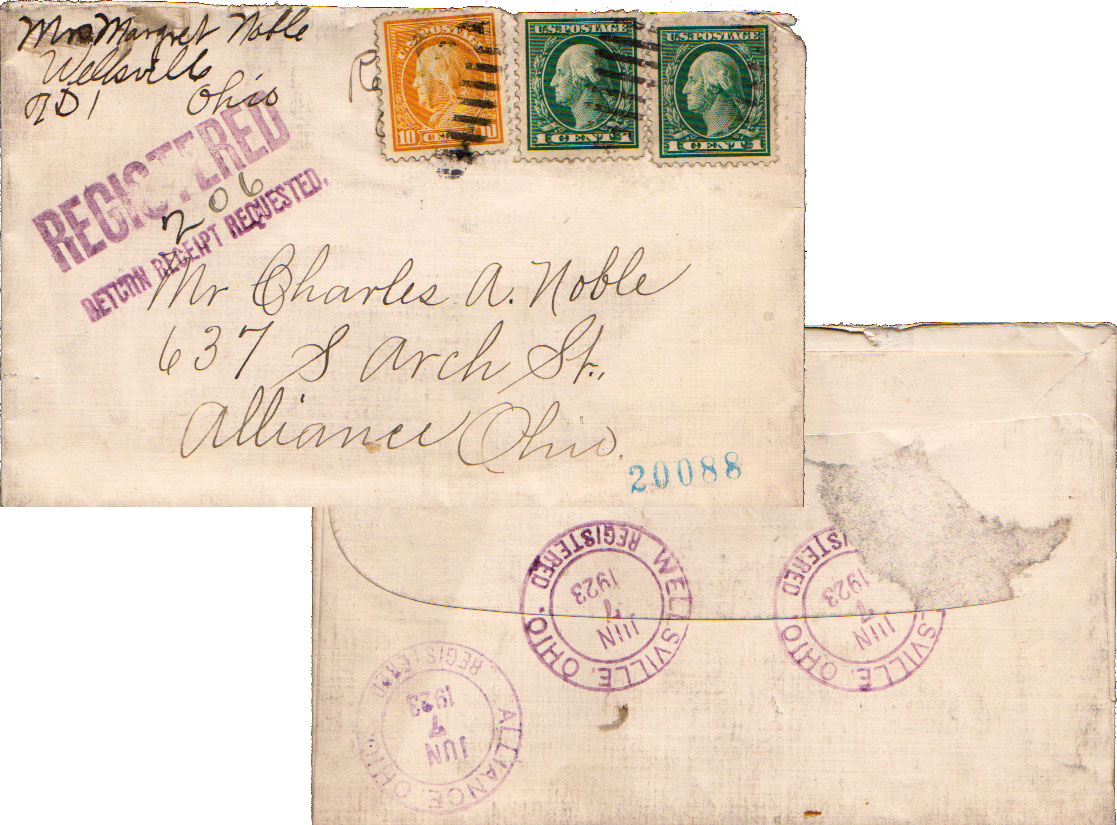 Mrs Margret Noble
Wellsville
RD 1 Ohio
U.S. POSTAGE
10 CENTS 10
U.S. POSTAGE
1 CENT 1
U.S. POSTAGE
1 CENT 1
REGISTERED
206
RETURN RECEIPT REQUESTED.
Mr Charles A. Noble
637 S Arch St.,
Alliance Ohio.
20088
WELLSVILLE, OHIO
REGISTERED
JUN
7
1923
SVILLE, OHIO
ISTERED
JUN
7
1923
ALLIANCE, OHIO
REGISTERED
JUN
7
1923